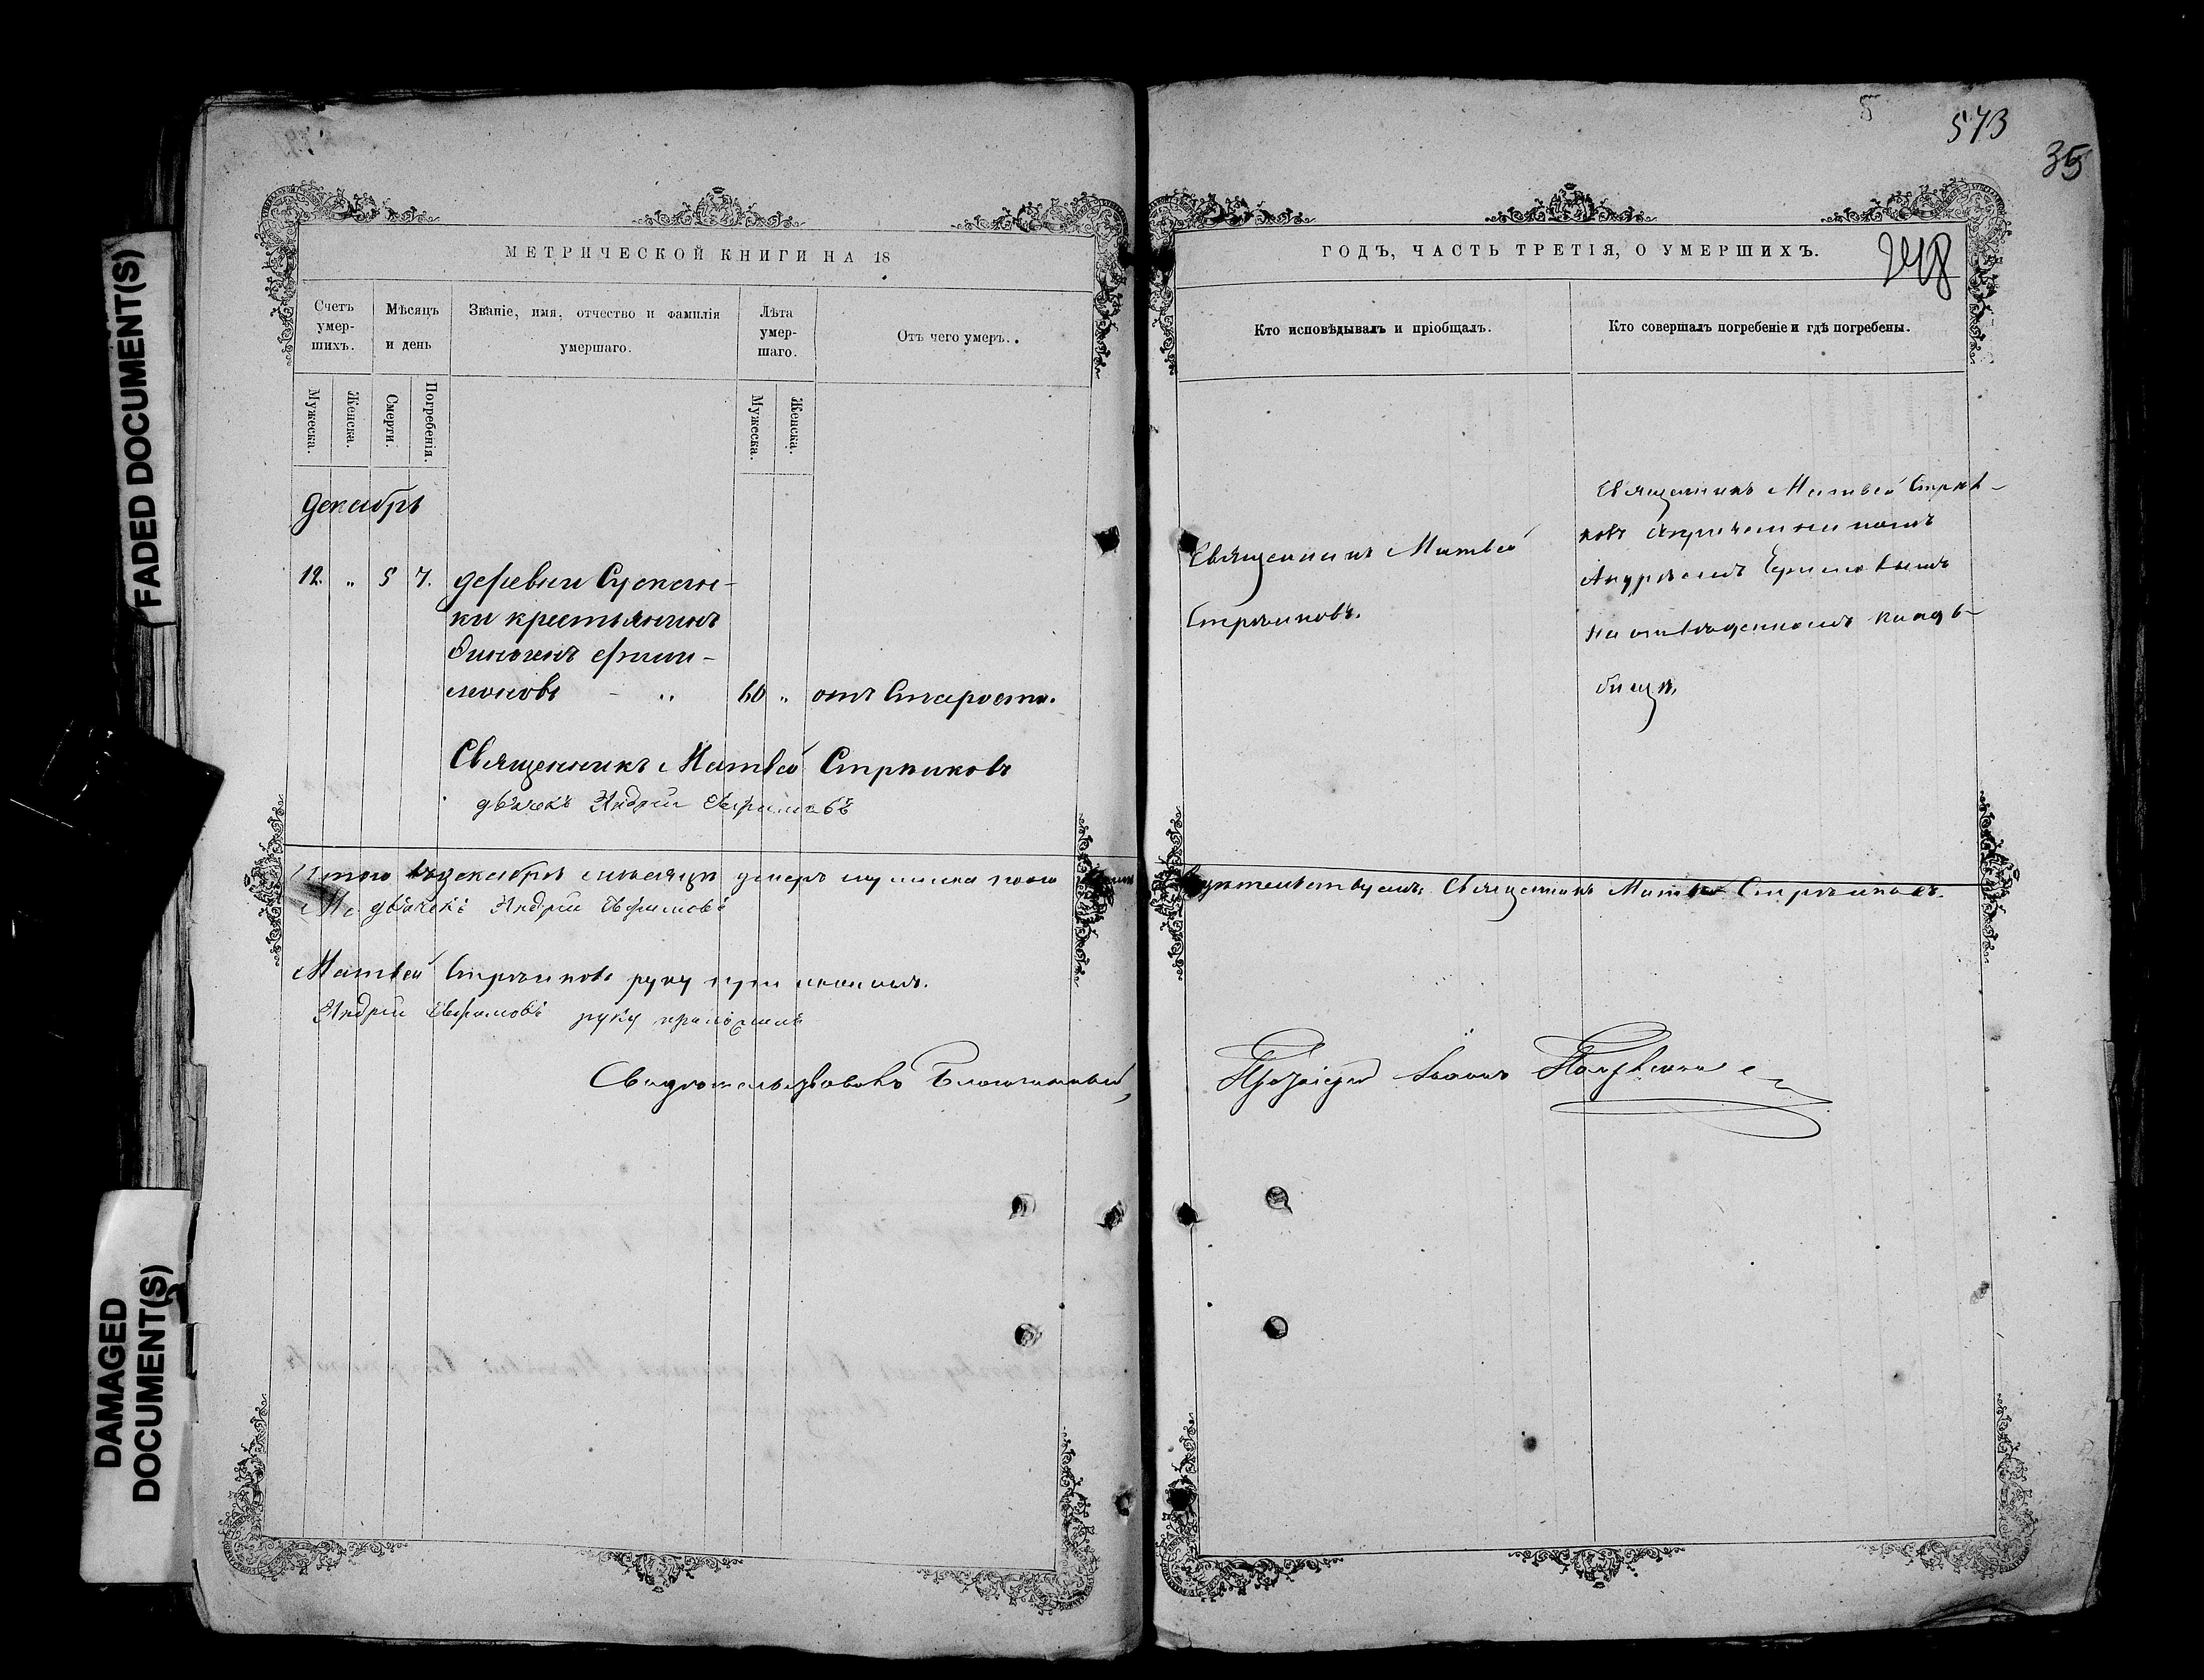 FADED DOCUMENT(S)
DAMAGED
DOCUMENT(S)
МЕТРИЧЕСКОЙ КНИГИ НА 18
Счетъ умер-шихъ.
Мѣсяцъ и день
Званіе, имя, отчество и фамилія умершаго.
Лѣта умер-шаго.
Отъ чего умеръ.
Мужеска.
Женска.
Смерти.
Погребенія.
Мужеска.
Женска.
Декабрь
12. „ 5 7. деревни Сускан-
ки крестьянинъ
моновъ „ 60 „ отъ Старости.
Священникъ Матвей Стрѣлковъ
дьячекъ Андрей Ефимовъ
Итого въ декабрѣ мѣсяцѣ умеръ мужеска пола
дьячекъ Андрей Ефимовъ
Матвей Стрѣлковъ руку приложилъ.
Андрей Ефимовъ руку приложилъ
Свидѣтельствовалъ Благочинный,
5
573
35
ГОДЪ, ЧАСТЬ ТРЕТІЯ, О УМЕРШИХЪ.
248
Кто исповѣдывалъ и пріобщалъ.
Кто совершалъ погребеніе и гдѣ погребены.
Священникъ Матвей
Стрѣлковъ.
Священникъ Матвей Стрѣл-
ковъ съ причетникомъ
Андреемъ Ефимовымъ
на отведенномъ кладъ-
бищѣ.
Священникъ Матвей Стрѣлковъ.
Протоіерей Іоаннъ